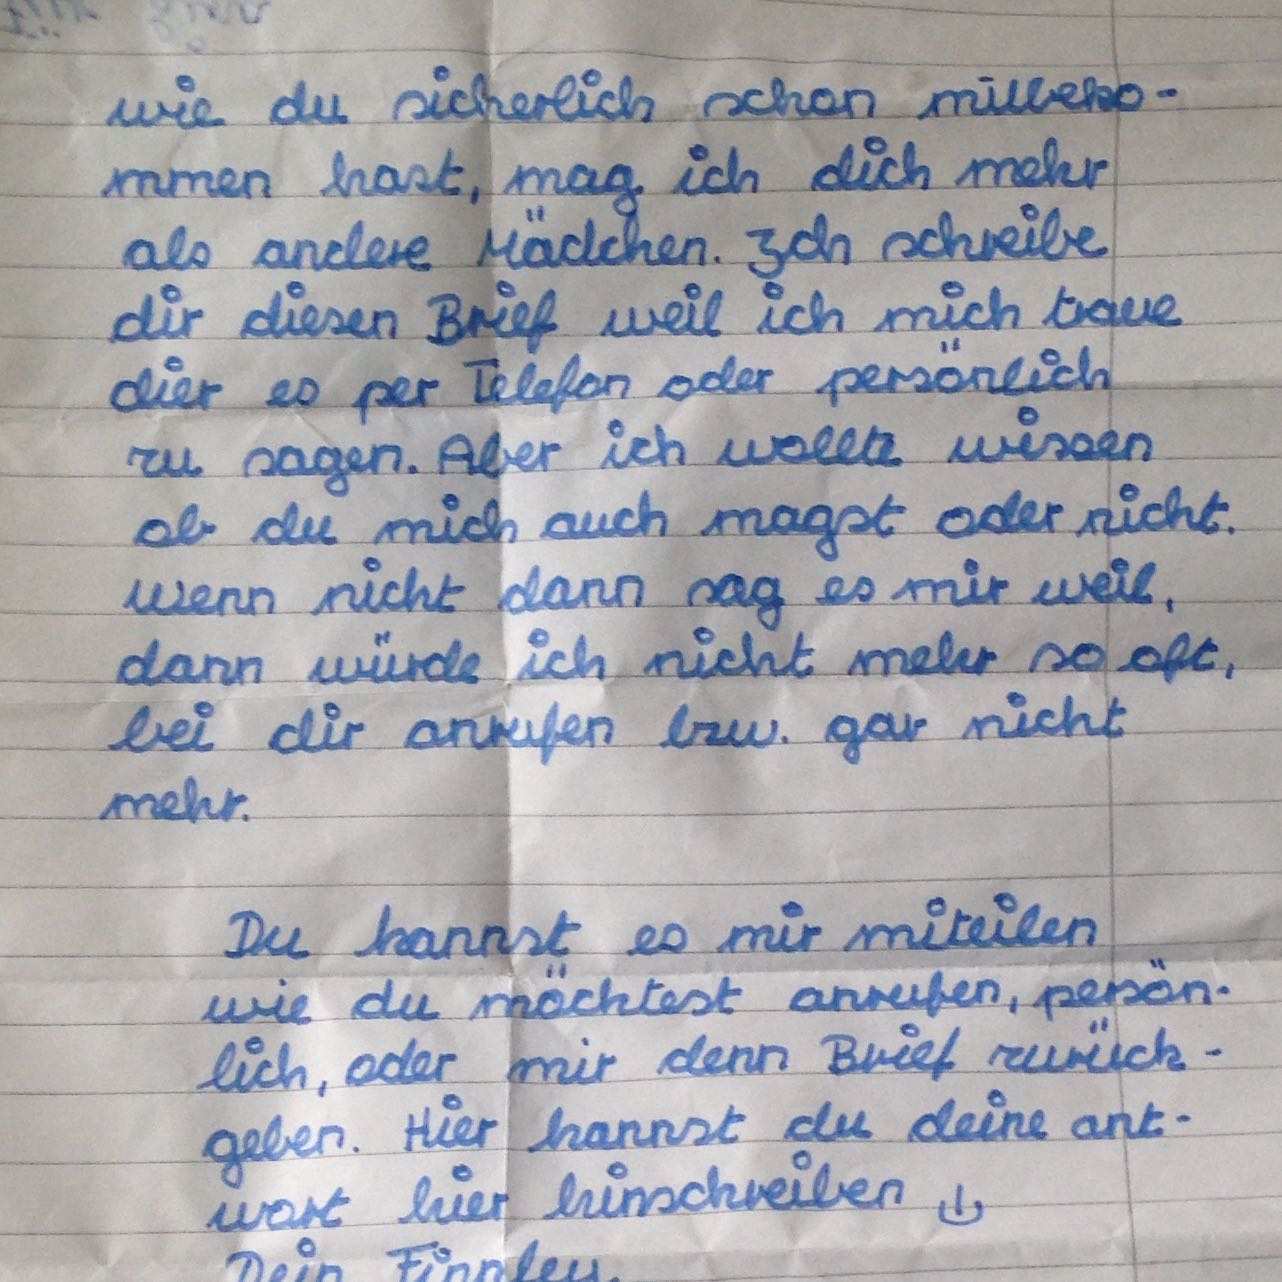 wie du sicherlich schon mitbeko-
mmen hast, mag ich dich mehr
als andere Mädchen. Ich schreibe
dir diesen Brief weil ich mich traue
dier es per Telefon oder persönlich
zu sagen. Aber ich wollte wissen
ob du mich auch magst oder nicht.
Wenn nicht dann sag es mir weil,
dann würde ich nicht mehr so oft,
bei dir anrufen bzw. gar nicht
mehr.
Du kannst es mir miteilen
wie du möchtest anrufen, persön-
lich, oder mir denn Brief zurück-
geben. Hier kannst du deine ant-
wort hier hinschreiben
Dein Finnley.